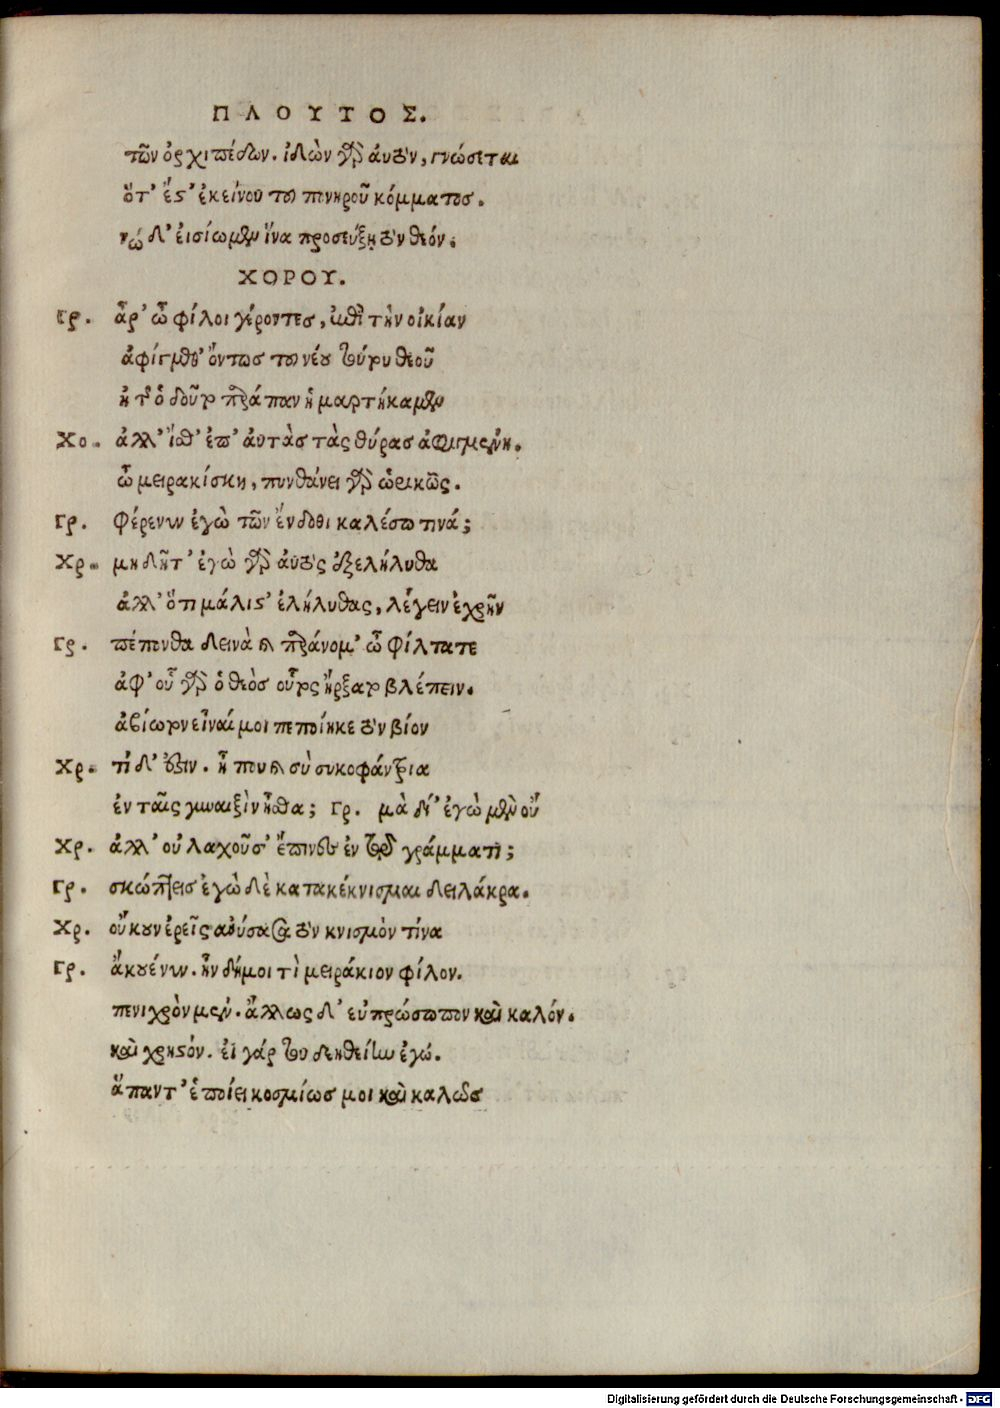 ΠΛΟΥΤΟΣ.
τῶν ὀρχιπέδων. ἰδὼν γὰρ ἀυτὸν, γνώσεται
ὅτ' ἔστ' ἐκείνου τοῦ πονηροῦ κόμματος.
νώ δ' ἐισίωμεν ἵνα προσεύξῃ τὸν θεόν.
ΧΟΡΟΥ.
Γρ. ἆρ' ὦ φίλοι γέροντες, ἐπὶ τὴν οἰκίαν
ἀφίγμεθ' ὄντως τοῦ νέου τούτου θεοῦ
ἢ τῆς ὁδοῦ τὸ παράπαν ἡμαρτήκαμεν
Χο. ἀλλ' ἴσθ' ἐπ' ἀυτὰς τὰς θύρας ἀφιγμένη.
ὦ μειρακίσκη, πυνθάνει γὰρ ὡρικῶς.
Γρ. φέρε νυν ἐγὼ τῶν ἔνδοθι καλέσω τινά;
Χρ. μὴ δῆτ' ἐγὼ γὰρ ἀυτὸς ἐξελήλυθα
ἀλλ' ὅτι μάλιστ' ἐλήλυθας, λέγειν ἐχρῆν
Γρ. πέπονθα δεινὰ καὶ παράνομ' ὦ φίλτατε
ἀφ' οὗ γὰρ ὁ θεὸς οὗτος ἤρξατο βλέπειν.
ἀβίωτον εἶναί μοι πεποίηκε τὸν βίον
Χρ. τί δ' ἔστιν. ἦ που καὶ σὺ συκοφάντρια
ἐν ταῖς γυναιξὶν ἦσθα; Γρ. μὰ δί' ἐγὼ μὲν οὔ
Χρ. ἀλλ' οὐ λαχοῦσ' ἔπινες ἐν τῷ γράμματι;
Γρ. σκώπτεις ἐγὼ δὲ κατακέκνισμαι δειλάκρα.
Χρ. οὔκουν ἐρεῖς ἀνύσασα τὸν κνισμὸν τίνα
Γρ. ἄκουέ νυν. ἦν δή μοι τὶ μειράκιον φίλον.
πενιχρὸν μὲν. ἄλλως δ' εὐπρόσωπον καὶ καλόν.
καὶ χρηστόν. εἰ γάρ του δεηθείην ἐγώ.
ἅπαντ' ἐποίει κοσμίως μοι καὶ καλῶς
Digitalisierung gefördert durch die Deutsche Forschungsgemeinschaft - DFG